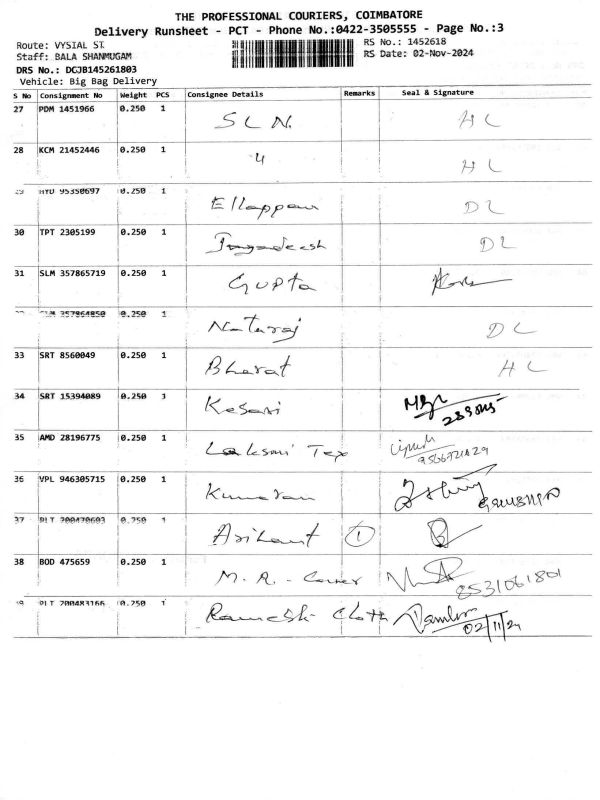 THE PROFESSIONAL COURIERS, COIMBATORE
Delivery Runsheet - PCT - Phone No.:0422-3505555 - Page No.:3
Route: VYSIAL ST. RS No.: 1452618
Staff: BALA SHANMUGAM RS Date: 02-Nov-2024
DRS No.: DCJB145261803
Vehicle: Big Bag Delivery
S No Consignment No Weight PCS Consignee Details Remarks Seal & Signature
27 PDM 1451966 0.250 1 SLN. HL
28 KCM 21452446 0.250 1 4 HL
29 HYD 95350697 0.250 1 Ellappan DL
30 TPT 2305199 0.250 1 Jagadeesh DL
31 SLM 357865719 0.250 1 Gupta
SLM 357864850 0.250 1 Nataraj DL
33 SRT 8560049 0.250 1 Bharat HL
34 SRT 15394089 0.250 1 Kesari
35 AMD 28196775 0.250 1 Laksmi Tex
9566721429
36 VPL 946305715 0.250 1 Kumaran
37 PLT 200470603 0.250 1 Arihant 1
38 BOD 475659 0.250 1 M. R. - Corner
8531061801
39 PLT 200483166 0.250 1 Ramesh Cloth
02/11/24